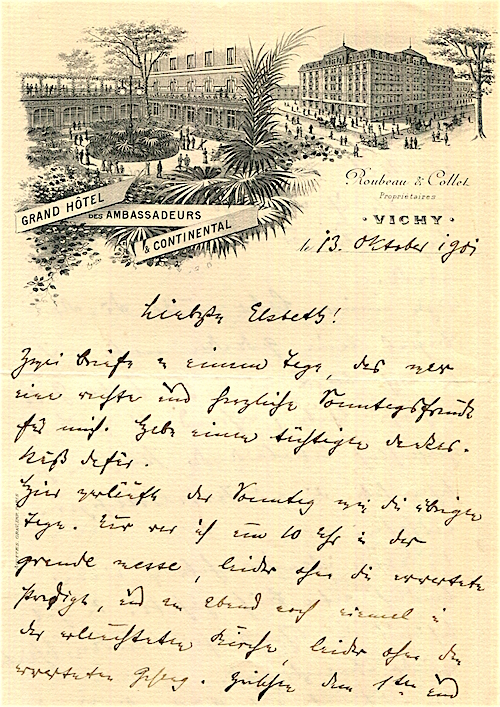 GRAND HÔTEL
DES AMBASSADEURS
& CONTINENTAL
Roubeau & Collet
Propriétaires
· VICHY ·
13. Oktober 1901
Liebste Elsbeth!
Zwei Briefe in einem Tage, das war
eine rechte und herzliche Sonntagsfreude
für mich. Habe einen tüchtigen Dankes-
kuß dafür.
Hier verläuft der Sonntag wie die übrigen
Tage. Nur war ich um 10 Uhr in der
grande messe, leider ohne die erwartete
Predigt, und am Abend noch einmal in
der erleuchteten Kirche, leider ohne den
erwarteten Gesang. Zwischen dem 1ten und